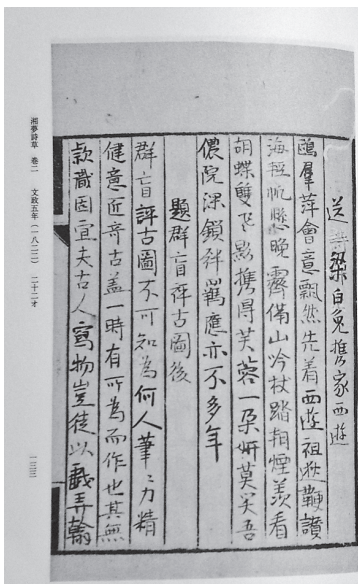 送詩梁白兔携家西遊
鷗羣萍會意飄然先着西遊祖逖鞭讃
海輕帆懸晚霽備山吟杖踏煙羨看
胡蝶雙影携得芙蓉一朶妍莫笑吾
儂院深鎖絆羈應亦不多年
題群盲評古圖後
群盲評古圖不可知為何人筆〻力精
健意近奇古盖一時有可為而作也其無
款識固宜夫古人寫物豈徒以戲弄翰
湘夢詩草 卷二 文政五年(一八二二)
一三三